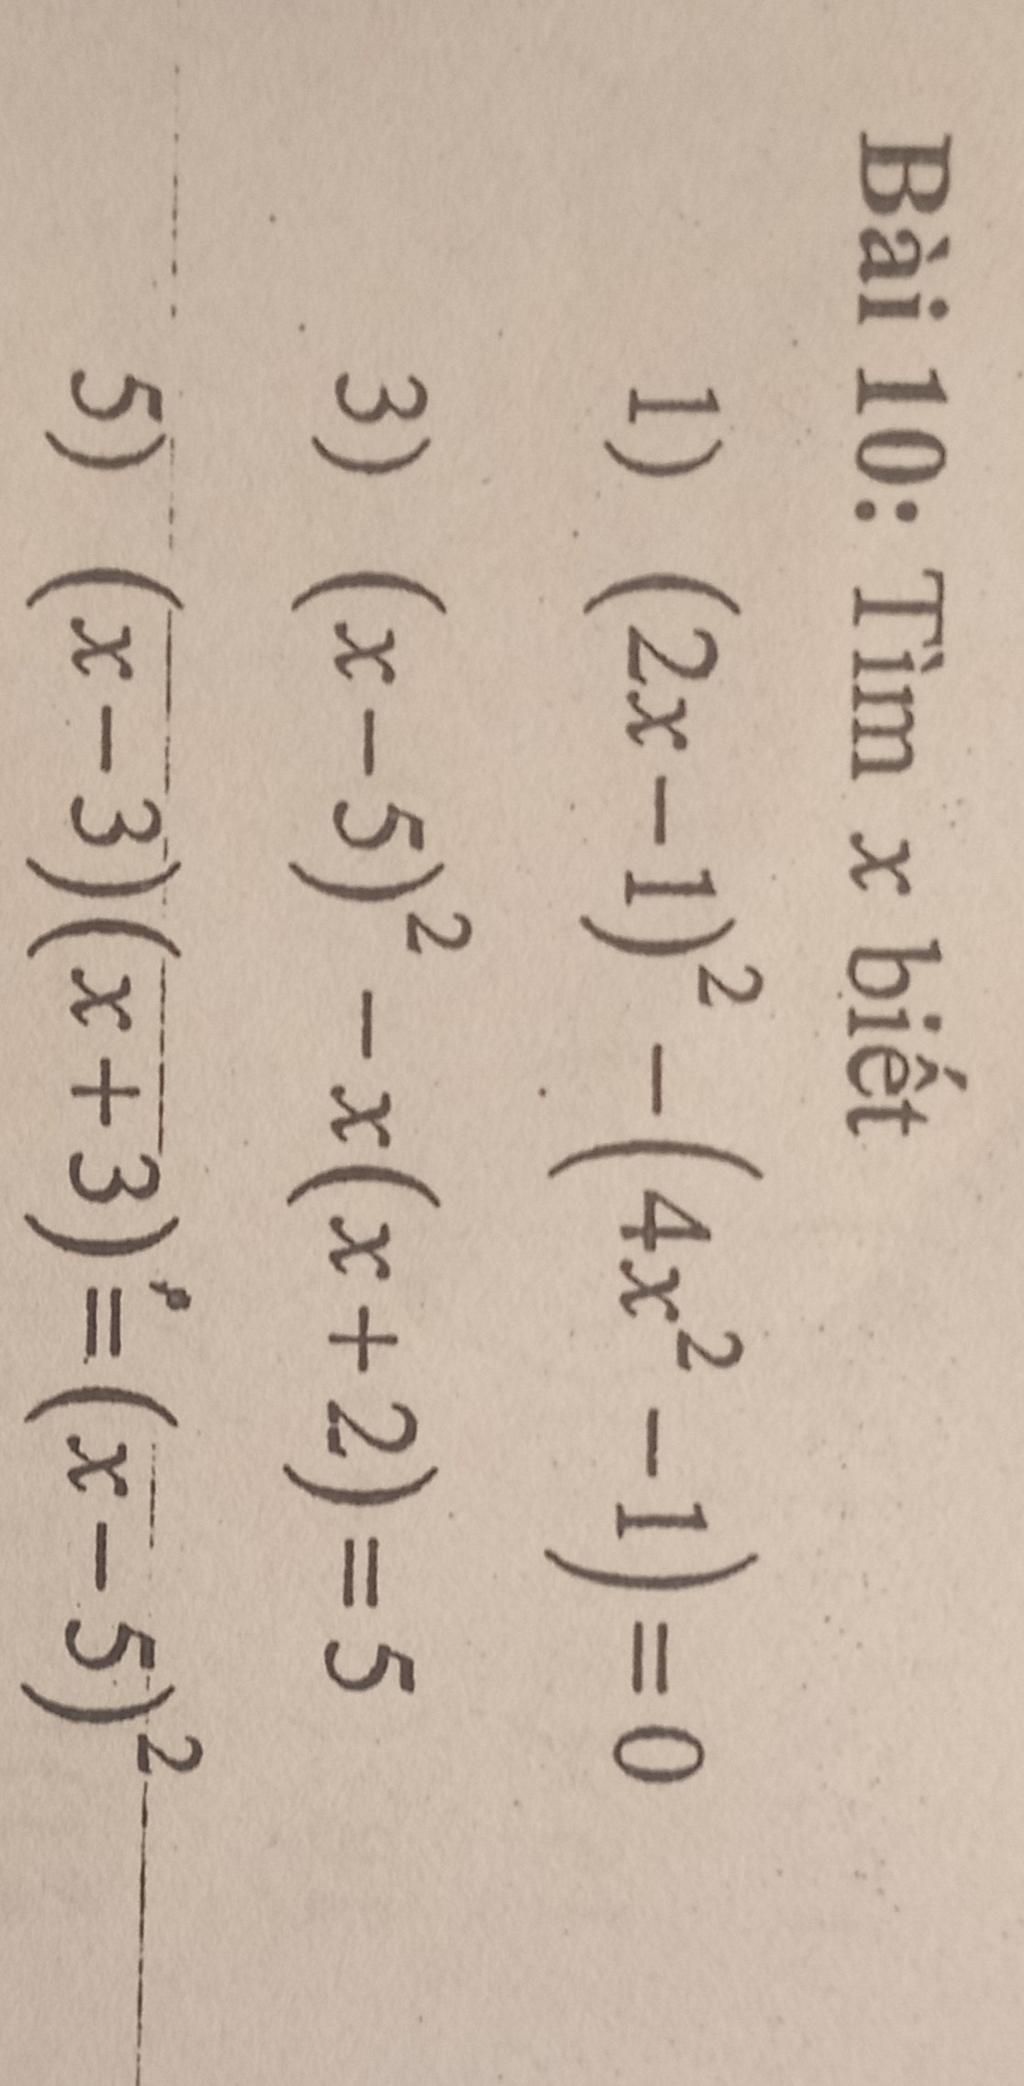 Bài 10: Tìm x biết
1) (2x-1)² -(4x² -1)=0
3) (x-5)² -x(x+2)=5
5) (x-3)(x+3)=(x-5)²